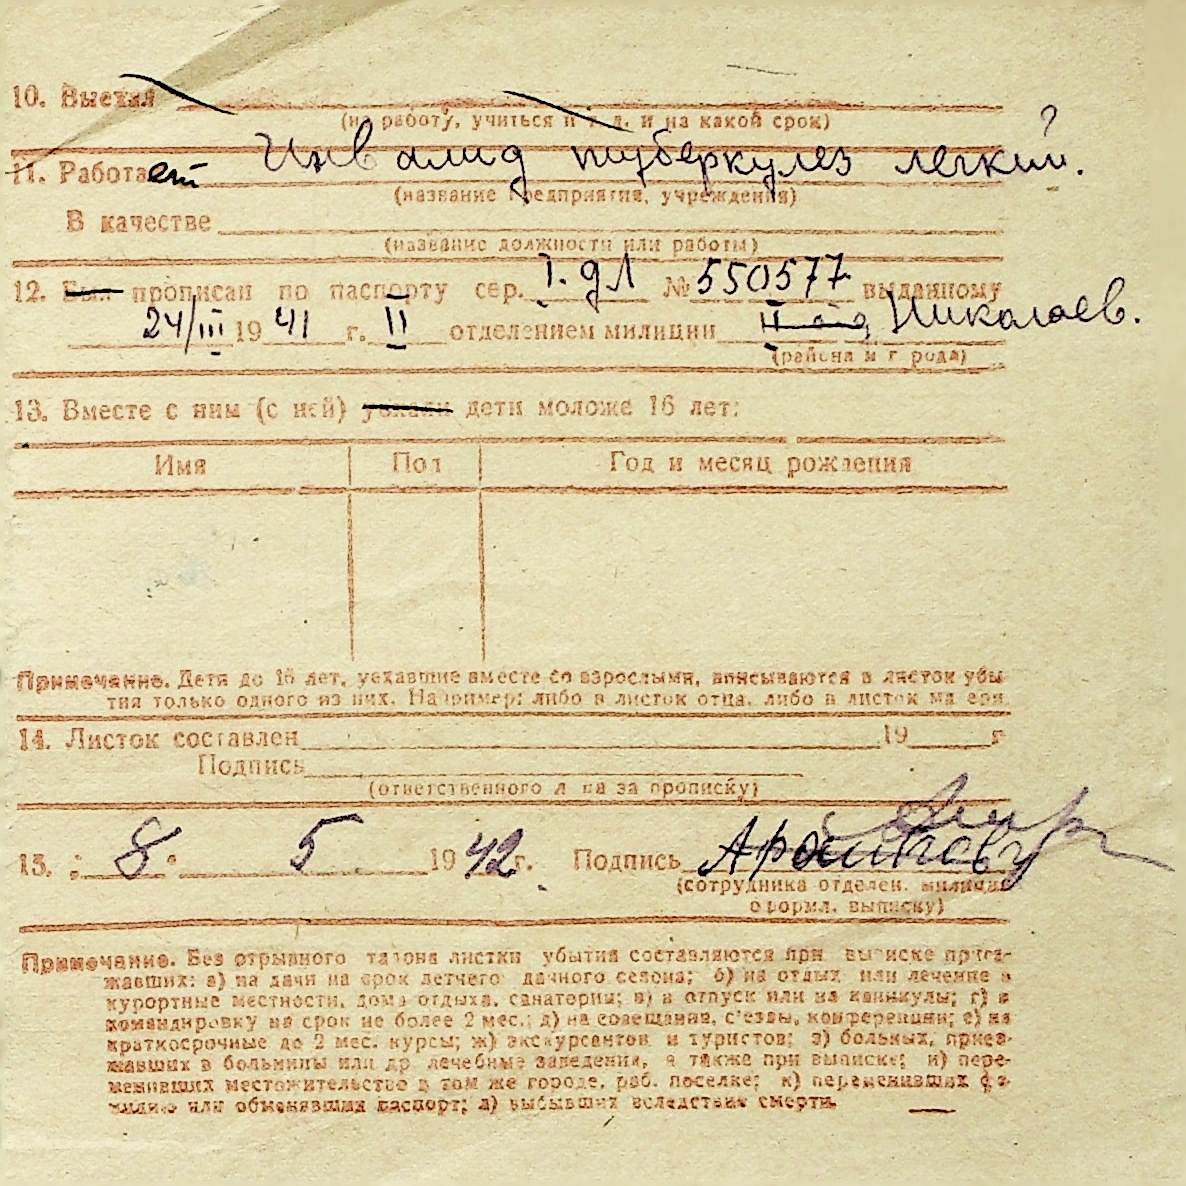 10. Выехал
(на работу, учиться и т. д. и на какой срок)
11. Работает Инвалид туберкулез легкий.
(название предприятия, учреждения)
В качестве
(название должности или работы)
12. Был прописан по паспорту сер. I. дл № 550577 выданному
24/III 1941 г. II отделением милиции Николаев.
(района и города)
13. Вместе с ним (с ней) уехали дети моложе 16 лет:
Имя Пол Год и месяц рождения
Примечание. Дети до 16 лет, уехавшие вместе со взрослыми, вписываются в листок убы-
тия только одного из них. Например: либо в листок отца, либо в листок матери
14. Листок составлен 19 г
Подпись
(ответственного лица за прописку)
15. 8 5 1942 г. Подпись
(сотрудника отделен. милиции
оформл. выписку)
Примечание. Без отрывного талона листки убытия составляются при выписке приез-
жавших: а) на дачи на срок летнего дачного сезона; б) на отдых или лечение в
курортные местности, дома отдыха, санатории; в) в отпуск или на каникулы; г) в
командировку на срок не более 2 мес.; д) на совещания, с'езды, конференции; е) на
краткосрочные до 2 мес. курсы; ж) экскурсантов и туристов; з) больных, приез-
жавших в больницы или др лечебные заведения, а также при выписке; и) пере-
менивших местожительство в том же городе, раб. поселке; к) переменивших фа-
милию или обменявших паспорт; л) выбывших вследствие смерти.